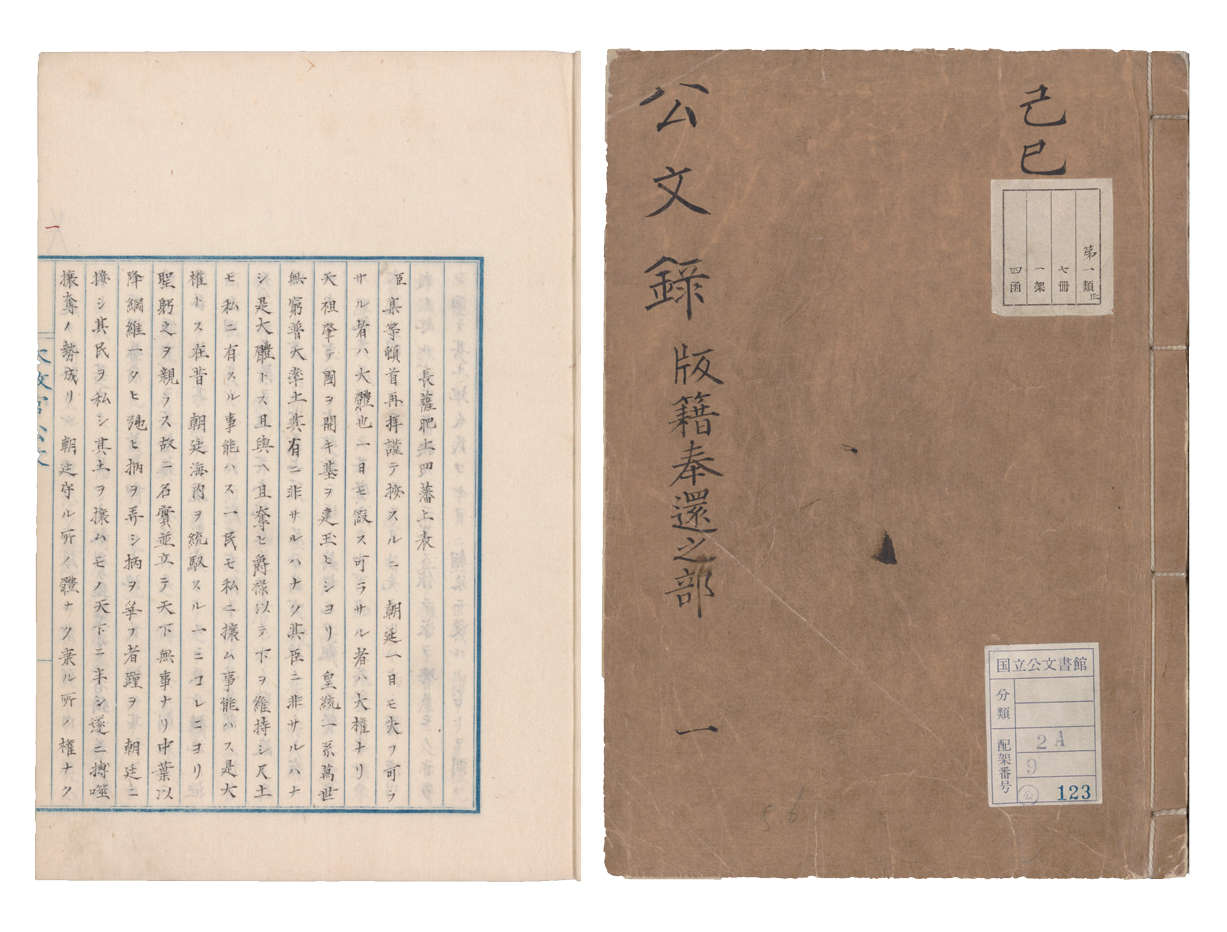 己巳
第一類
七冊
一架
四函
公文録 版籍奉還之部 一
国立公文書館
分類
配架番号
2A
9
公
123
56
長薩肥土四藩上表
臣某等頓首再拝謹テ按スルニ 朝廷一日モ失フ可ラ
サル者ハ大體也一日モ假ス可ラサル者ハ大權ナリ
天祖肇テ國ヲ開キ基ヲ建玉ヒシヨリ 皇統一系萬世
無窮普天率土其有ニ非サルハナク其臣ニ非サルハナ
シ是大體トス且與ヘ且奪ヒ爵禄以テ下ヲ維持シ尺土
モ私ニ有スル事能ハス一民モ私ニ攘ム事能ハス是大
權トス在昔 朝廷海内ヲ統馭スル一ニコレニヨリ
聖躬之ヲ親ラス故ニ名實並立テ天下無事ナリ中葉以
降綱維一タヒ弛ヒ柄ヲ弄シ柄ヲ爭フ者踵ヲ 朝廷ニ
接シ其民ヲ私シ其土ヲ攘ムモノ天下ニ半シ遂ニ搏噬
攘奪ノ勢成リ 朝廷守ル所ノ體ナク秉ル所ノ權ナク
一